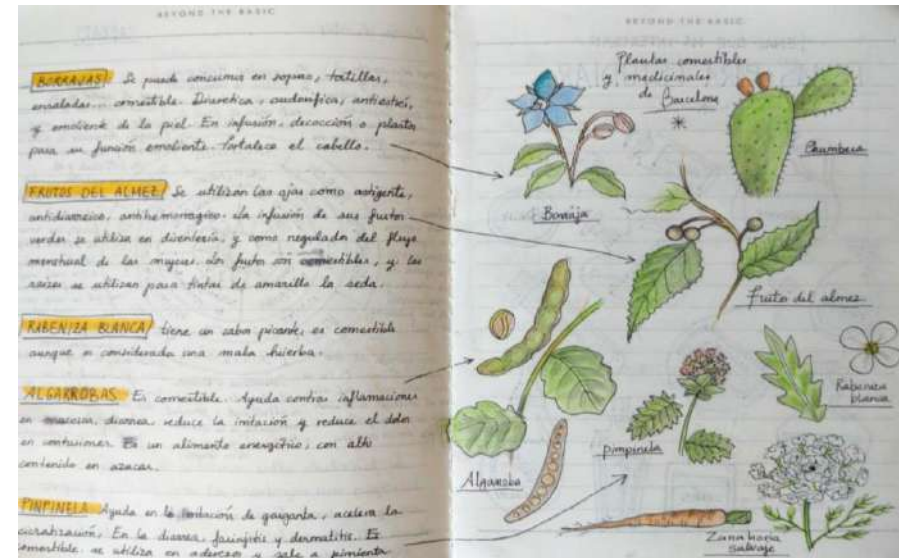 BEYOND THE BASIC
BORRAJAS Se puede consumir en sopas, tortillas,
ensaladas... comestible. Diuretica, sudorifica,
y emoliente de la piel. En infusión, decocción o
para su función emoliente. Fortalece el cabello.
FRUTOS DEL ALMEZ Se utilizan las ojas como astigente,
antidiarreico, antihemorragico. La infusión de sus frutos
verdes se utiliza en disentería, y como regulador del flujo
menstrual de las mujeres. Los frutos son comestibles, y las
raizes se utilizan para tintar de amarillo la seda.
RABENIZA BLANCA tiene un sabor picante, es comestible
aunque es considerada una mala hierba.
ALGARROBAS Es comestible. Ayuda contra inflamaciones
en mucosas, diarrea, reduce la irritación y reduce el dolor
en contusiones. Es un alimento energetico, con alto
contenido en azucar.
PINPINELA Ayuda en la irritación de garganta, acelera la
cicatrización. En la diarrea, faringitis y dermatitis. Es
comestible, se utiliza en aderezos y sale a pimienta
BEYOND THE BASIC
Plantas comestibles
y medicinales
de Barcelona
Chumbera
Borraja
fruto del almez
Rabeniza
blanca
Pimpinela
Algarroba
Zanahoria
salvaje